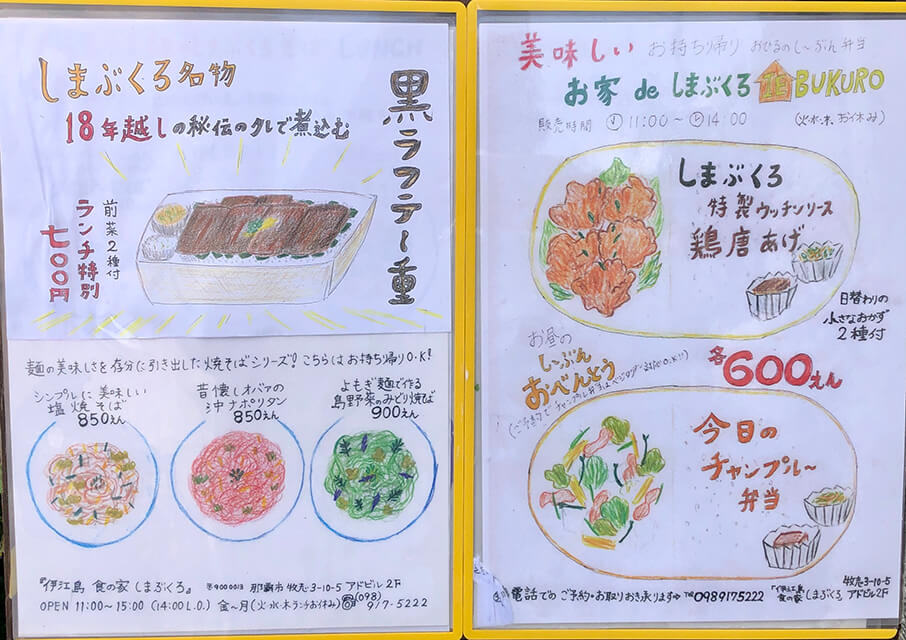 しまぶくろ名物
18年越しの秘伝のタレで煮込む
黒ラフテー重
前菜2種付
ランチ特別
七〇〇円
麺の美味しさを存分に引き出した焼そばシリーズ!こちらはお持ち帰りO・K!
シンプルに美味しい
塩焼そば
850えん
昔懐しオバアの
沖ナポリタン
850えん
よもぎ麺で作る
島野菜のみどり焼そば
900えん
『伊江島 食の家 しまぶくろ』 〒9000013 那覇市牧志3-10-5 アドビル2F
OPEN 11:00~15:00(14:00L.O.) 金~月(火水木ランチお休み) ☎(098)
917-5222
美味しい お持ち帰り おひるのし~ぶん弁当
お家 de しまぶくろ IE BUKURO
販売時間 11:00~14:00 (火・水・木、お休み)
しまぶくろ
特製ウッチンソース
鶏唐あげ
日替わりの
小さなおかず
2種付
お昼の
しーぶん
おべんとう
各600えん
今日の
チャンプル~
弁当
電話でのご予約・お取りおき承ります⇨ TEL 0989175222
『伊江島
食の家 しまぶくろ』
牧志3-10-5
アドビル2F